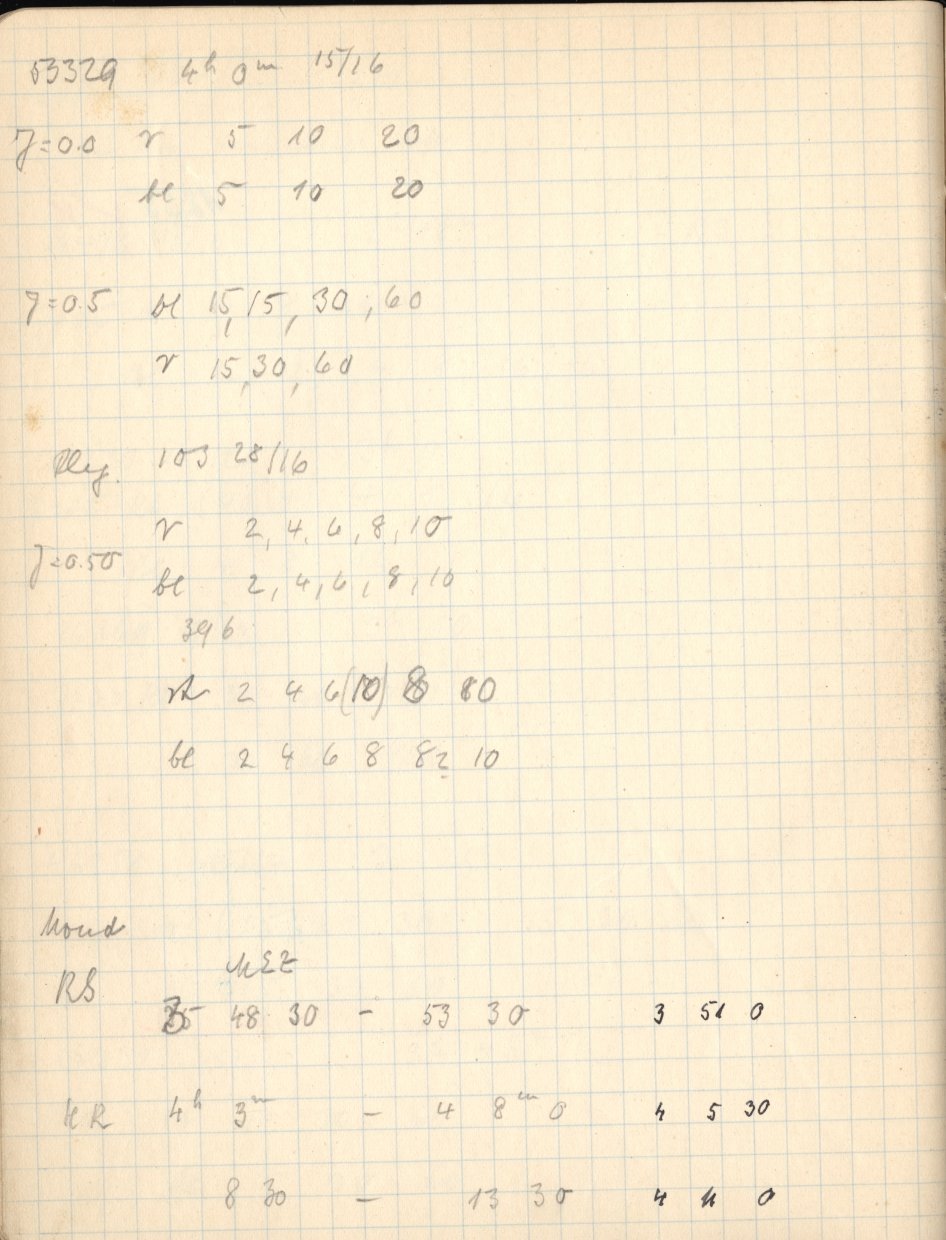 53329 4h 0m 15/16
J=0.0 r 5 10 20
bl 5 10 20
J=0.5 bl 15, 15, 30, 60
r 15, 30, 60
103 28/16
r 2, 4, 6, 8, 10
J=0.50
bl 2, 4, 6, 8, 10
396
2 4 6 (10) 8 10
bl 2 4 6 8 8? 10
Mond
MEZ
RS
3 48 30 - 53 30 3 51 0
4h 3m - 4 8m 0 4 5 30
8 30 - 13 30 4 11 0